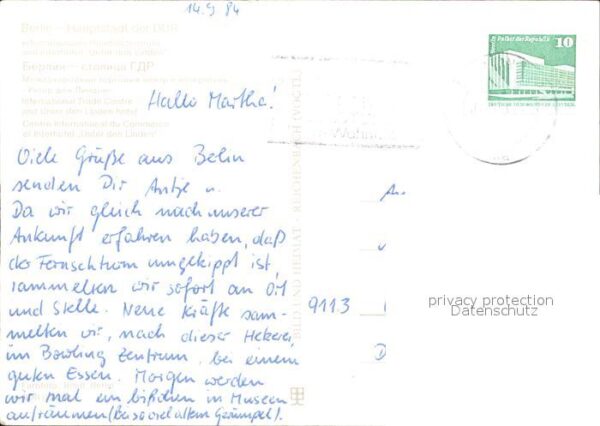 14.9 84
Berlin - Hauptstadt der DDR
Internationales Handelszentrum
und Interhotel "Unter den Linden"
Берлин - столица ГДР
International Trade Centre
and Unter den Linden hotel
Centre international du Commerce
et Interhotel "Unter den Linden"
10
Palast der Republik
Hallo Martha!
Viele Grüße aus Beln
senden Dir Antje u.
Da wir gleich nach unserer
Ankunft erfahren haben, daß
der Fernsehturm umgekippt ist,
rammelten wir sofort an Ort
und Stelle. Neue Kräfte sam-
melten wir, nach dieser Hetzerei,
im Bowling Zentrum, bei einem
guten Essen. Morgen werden
wir mal ein bißchen in Museen
aufräumen (Da so viel altem Gerümpel).
An.
9113
D
BILD UND HEIMAT REICHENBACH
privacy protection
Datenschutz